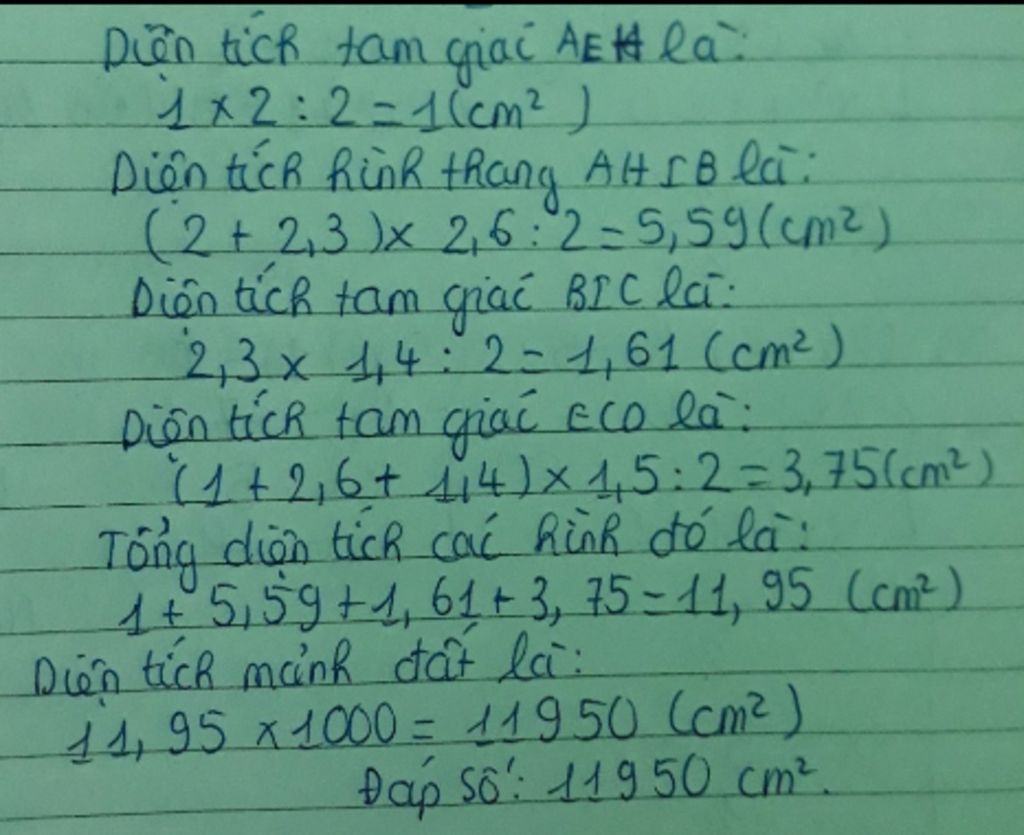 Diện tích tam giác AEH là:
1 x 2 : 2 = 1 (cm²)
Diện tích hình thang AHIB là:
(2 + 2,3) x 2,6 : 2 = 5,59 (cm²)
Diện tích tam giác BIC là:
2,3 x 1,4 : 2 = 1,61 (cm²)
Diện tích tam giác ECD là:
(1 + 2,6 + 1,4) x 1,5 : 2 = 3,75 (cm²)
Tổng diện tích các hình đó là:
1 + 5,59 + 1,61 + 3,75 = 11,95 (cm²)
Diện tích mảnh đất là:
11,95 x 1000 = 11950 (cm²)
Đáp số: 11950 cm².